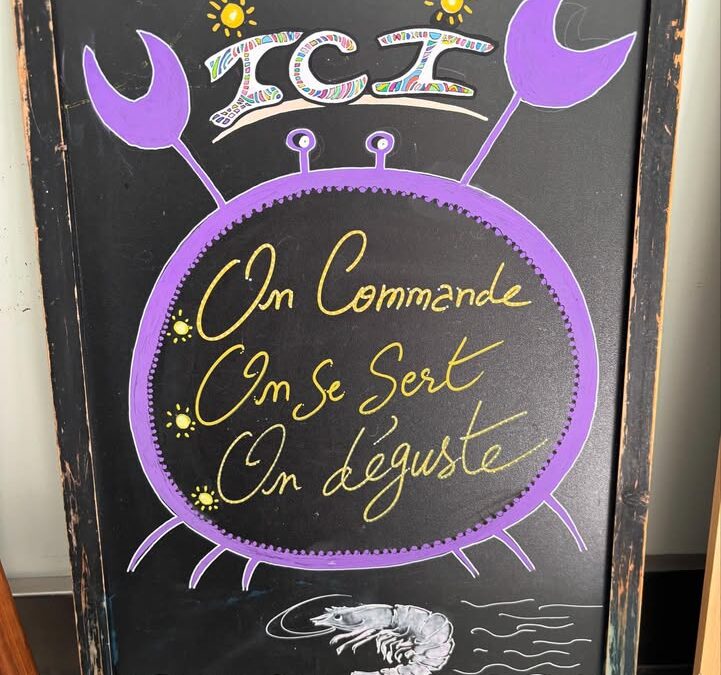 ICI
On Commande
On Se Sert
On déguste